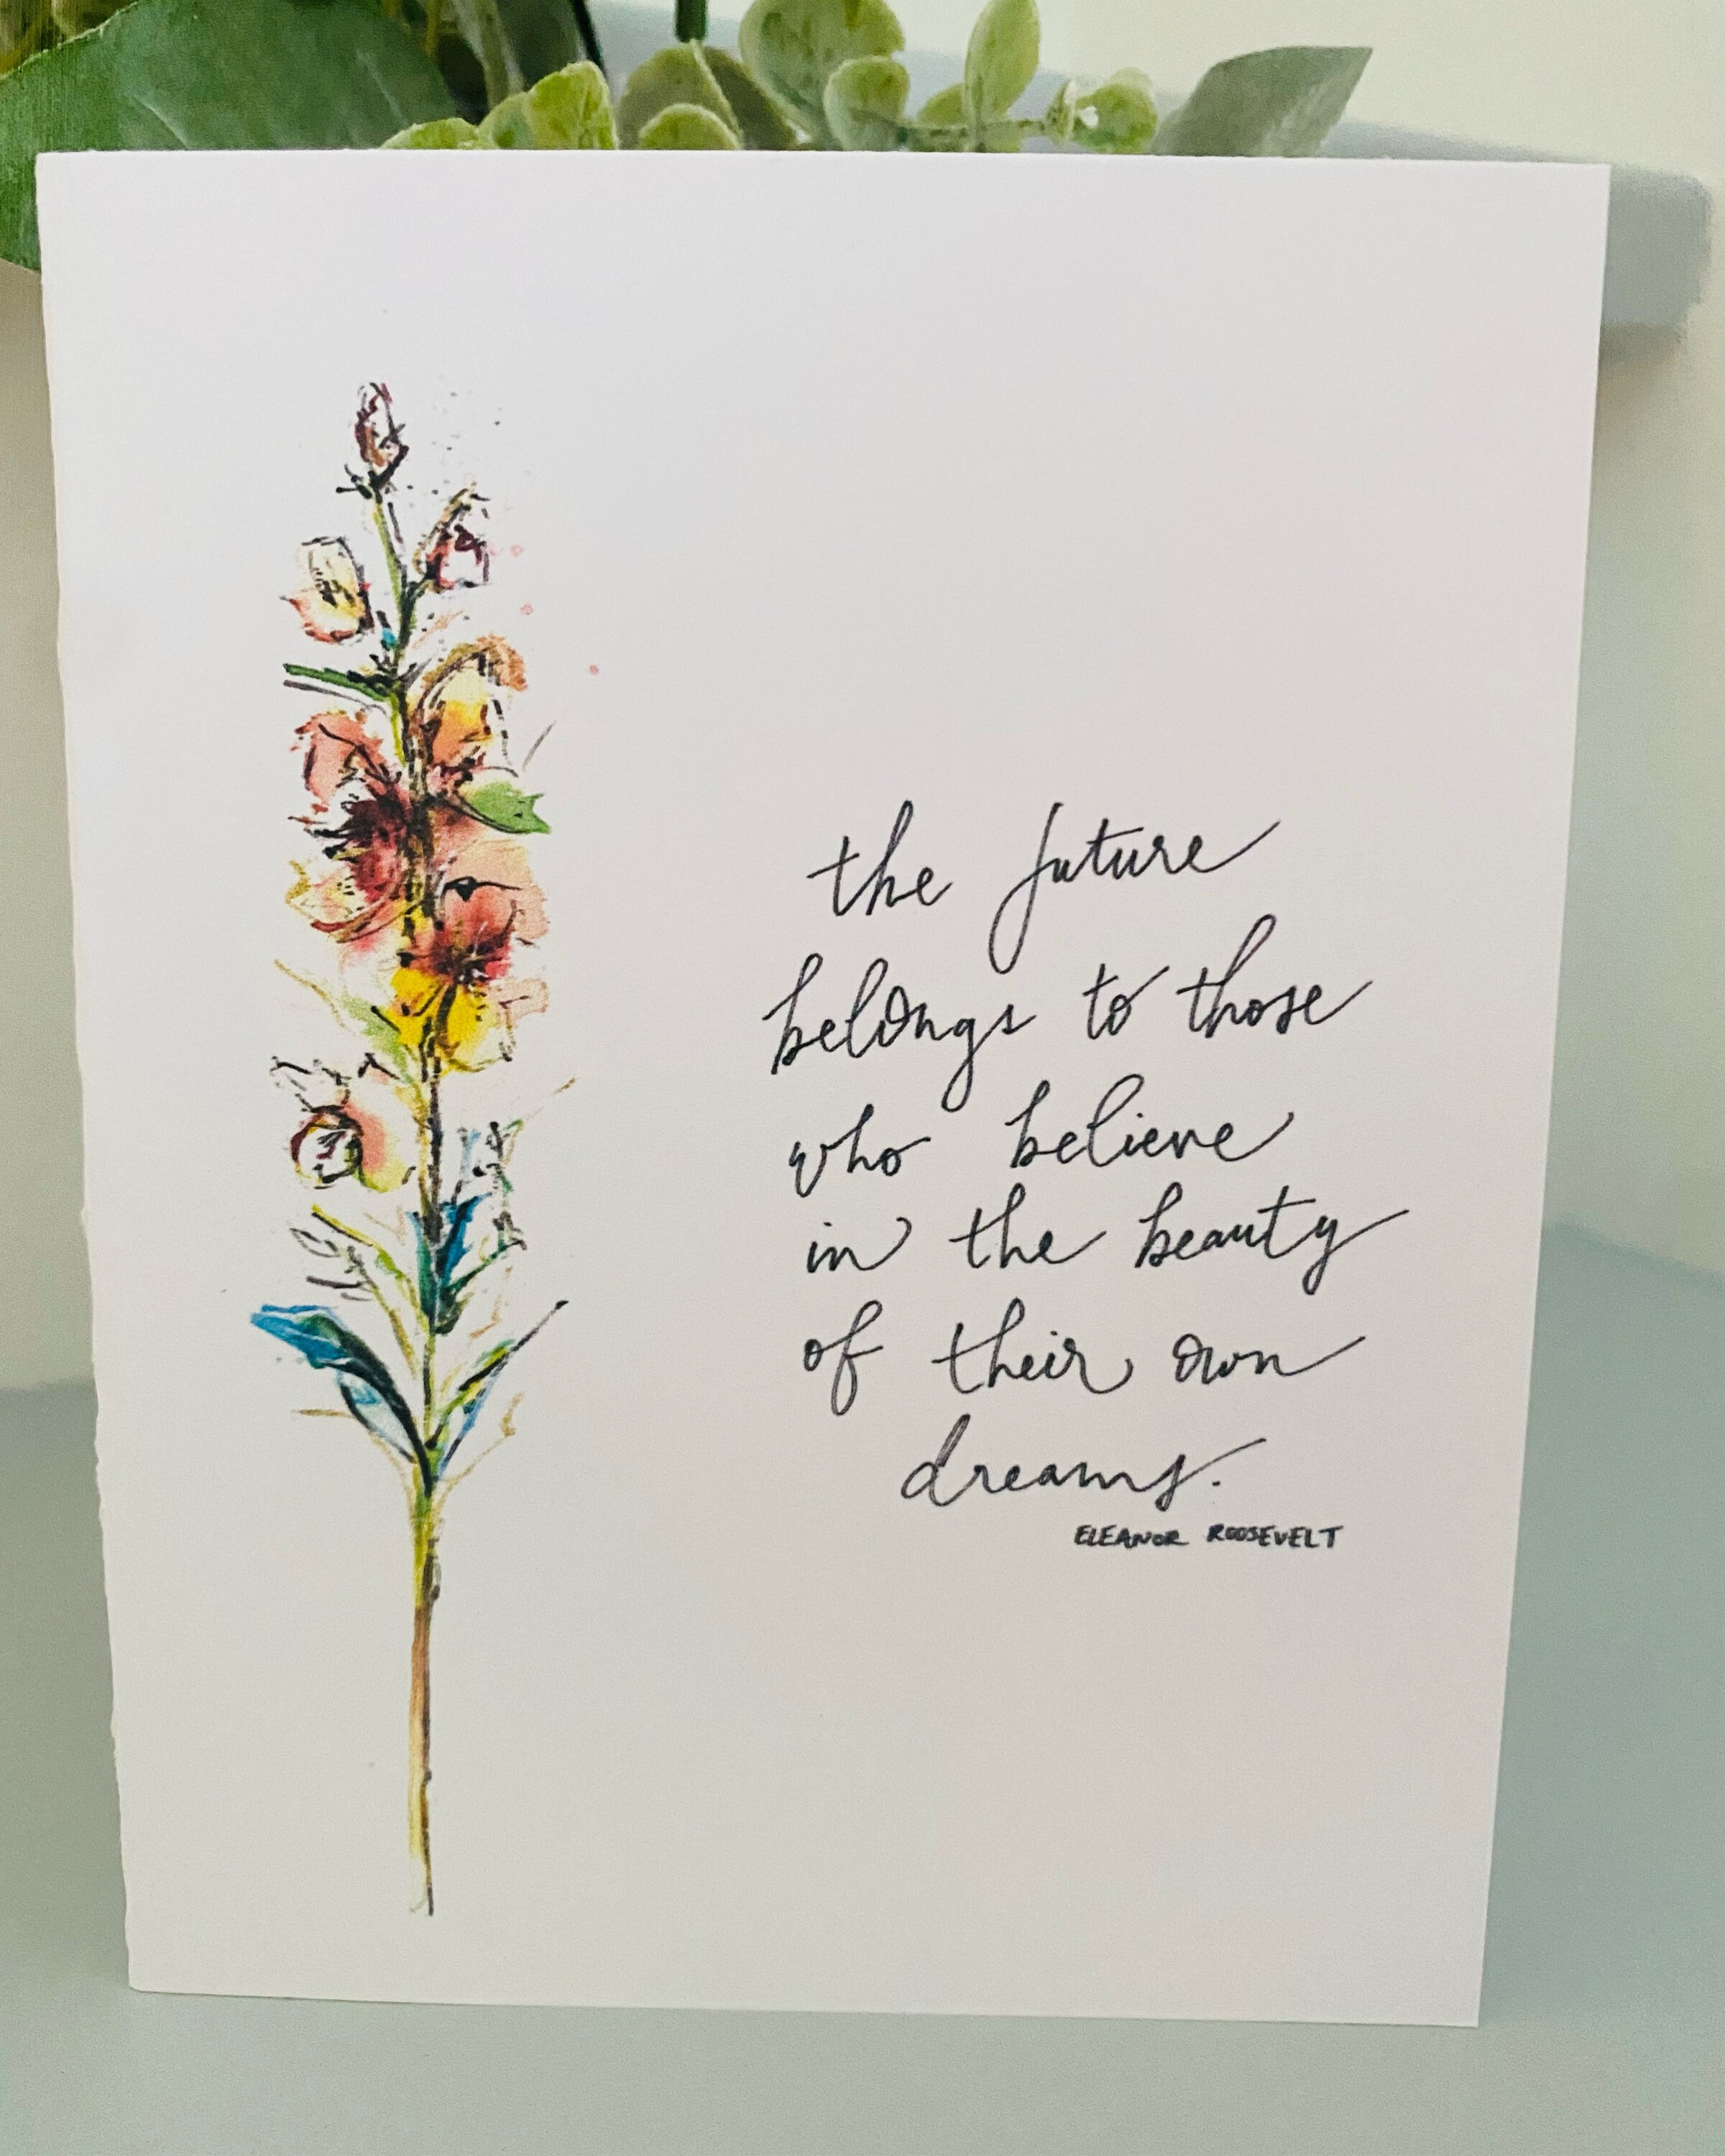 the future
belongs to those
who believe
in the beauty
of their own
dreams.
ELEANOR ROOSEVELT